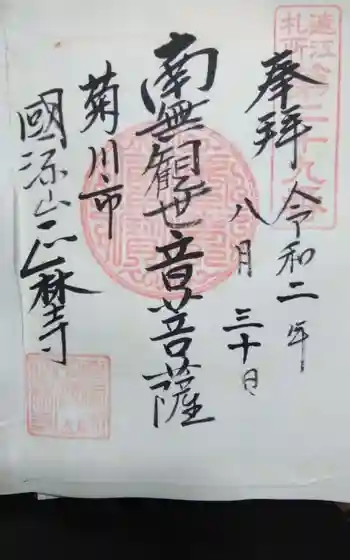 奉拝
令和二年
八月三十日
南無観世音菩薩
菊川市
國源山正林寺
遠江
札所